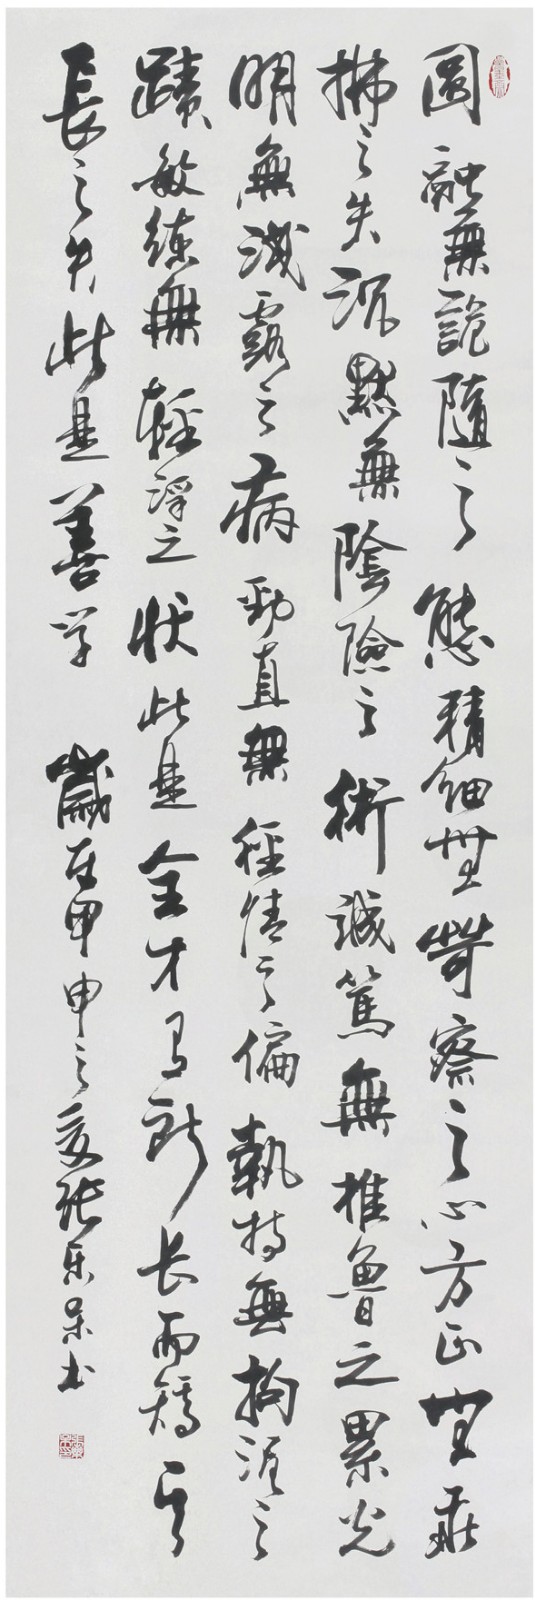 圓融無詭隨之態精細無苛察之心方正無乖
拂之失沉默無陰險之術誠篤無椎魯之累光
明無淺露之病勁直無徑情之偏執持無拘泥之
蹟敏練無輕浮之狀此是全才有所长而矯其
長之失此是善学 歲在甲申之夏張书